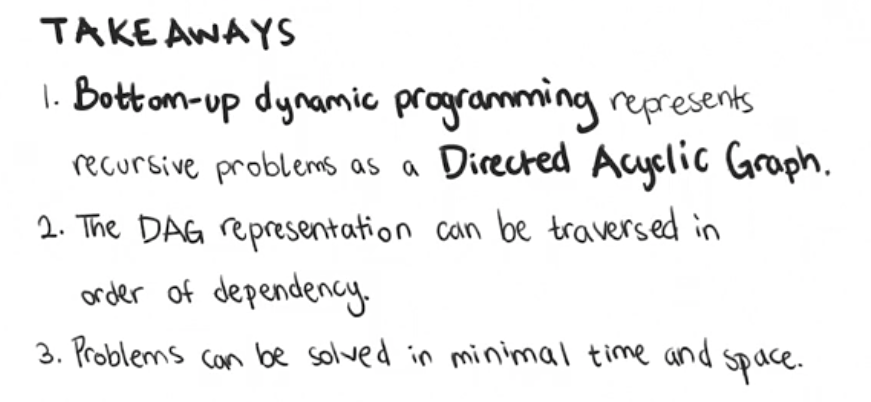 TAKEAWAYS
1. Bottom-up dynamic programming represents
recursive problems as a Directed Acyclic Graph.
2. The DAG representation can be traversed in
order of dependency.
3. Problems can be solved in minimal time and space.